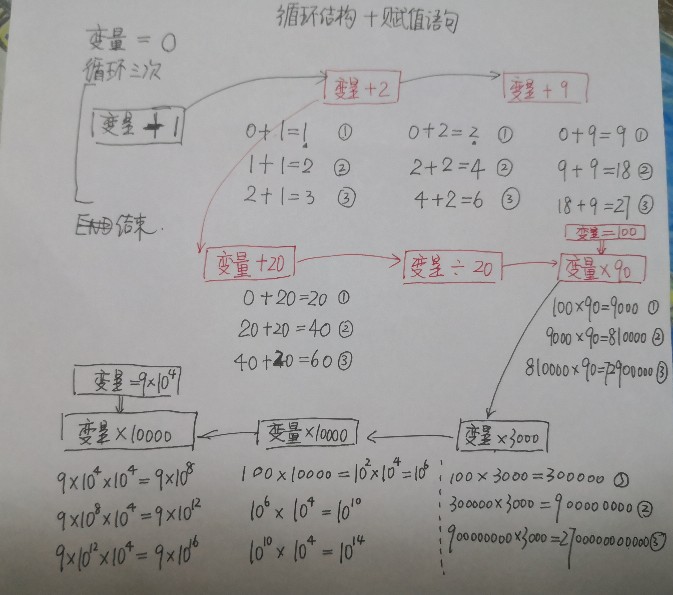 循环结构 + 赋值语句
变量 = 0
循环三次
变量 + 1
变量 + 2
变量 + 9
0+1=1 ①
1+1=2 ②
2+1=3 ③
0+2=2 ①
2+2=4 ②
4+2=6 ③
0+9=9 ①
9+9=18 ②
18+9=27 ③
END 结束.
变量=100
变量 +20
变量 ÷ 20
变量×90
0+20=20 ①
20+20=40 ②
40+20=60 ③
100×90=9000 ①
9000×90=810000 ②
810000×90=72900000 ③
变量=9×10⁴
变量×10000
变量×10000
变量×3000
9×10⁴×10⁴=9×10⁸
9×10⁸×10⁴=9×10¹²
9×10¹²×10⁴=9×10¹⁶
100×10000=10²×10⁴=10⁶
10⁶×10⁴=10¹⁰
10¹⁰×10⁴=10¹⁴
100×3000=300000
300000×3000=900000000 ②
900000000×3000=2700000000000 ③